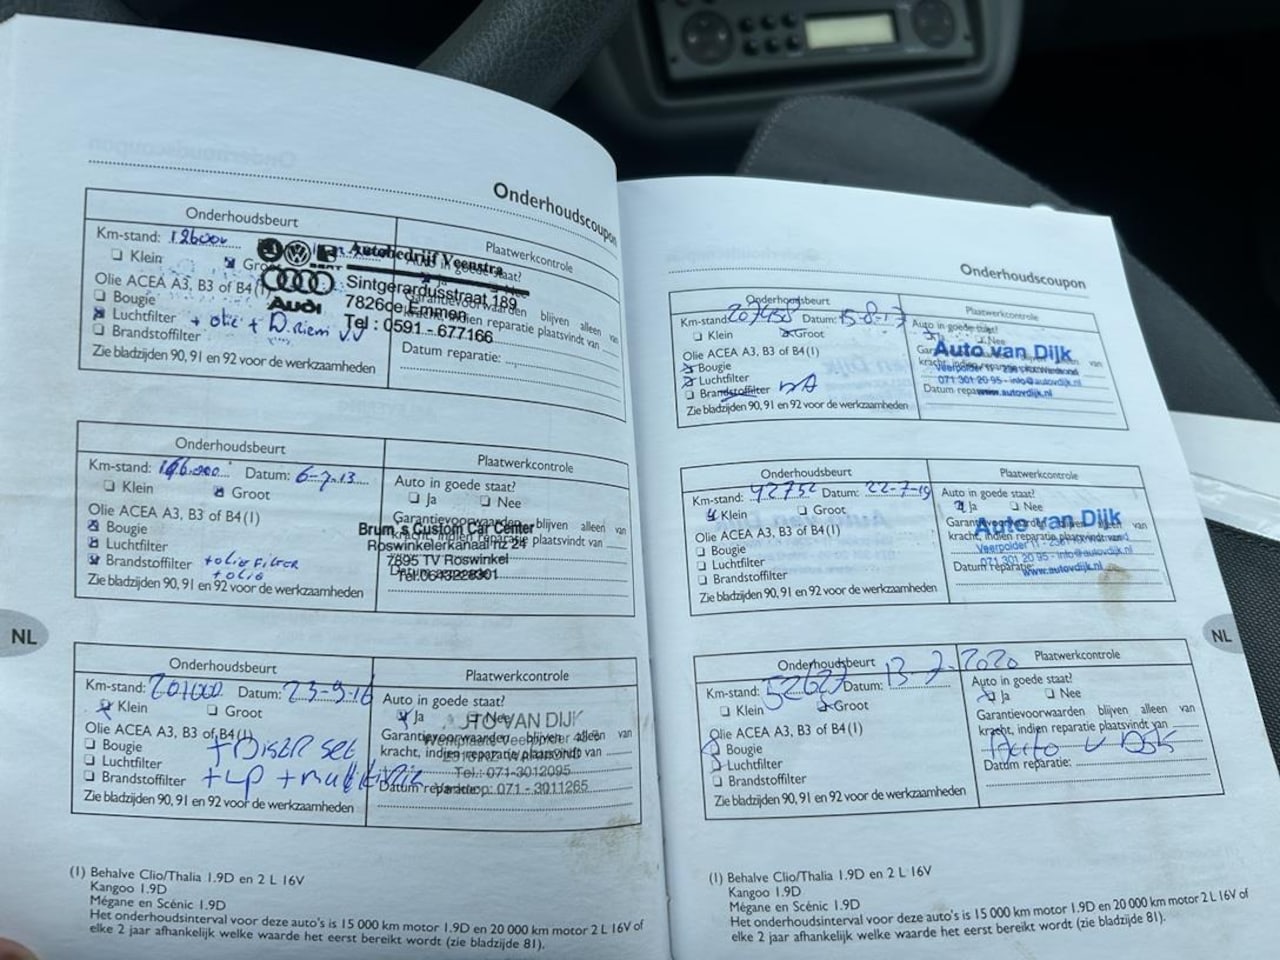 Onderhoudscoupon
Onderhoudsbeurt
Plaatwerkcontrole
Km-stand: 126000
Klein
Groot
Autobedrijf Veenstra
Auto in goede staat?
Ja
Olie ACEA A3, B3 of B4(1)
Audi
Sintgerardusstraat 189
7826de Emmen
Tel : 0591 - 677166
Garantievoorwaarden blijven alleen van
kracht, indien reparatie plaatsvindt van
Bougie
Luchtfilter + olie + D.riem
Brandstoffilter
Datum reparatie:
Zie bladzijden 90, 91 en 92 voor de werkzaamheden
Onderhoudsbeurt
Plaatwerkcontrole
Km-stand: Datum: 6-7-13
Klein
Groot
Auto in goede staat?
Ja
Nee
Olie ACEA A3, B3 of B4(1)
Garantievoorwaarden blijven alleen van
kracht, indien reparatie plaatsvindt van
Brum,s Custom Car Center
Roswinkelerkanaal nz 24
7895 TV Roswinkel
Tel:0643228301
Bougie
Luchtfilter
Brandstoffilter + olie Filter
+ olie
Zie bladzijden 90, 91 en 92 voor de werkzaamheden
Onderhoudsbeurt
Plaatwerkcontrole
Km-stand: 201000 Datum: 23-9-16
Klein
Groot
Auto in goede staat?
Ja
Nee
AUTO VAN DIJK
Olie ACEA A3, B3 of B4(1)
Garantievoorwaarden blijven alleen van
kracht, indien reparatie plaatsvindt van
Tel.: 071-3012095
Bougie
+ Distr set
Luchtfilter
Brandstoffilter + LP + multi
Datum reparatie:
071 - 3011265
Zie bladzijden 90, 91 en 92 voor de werkzaamheden
NL
(1) Behalve Clio/Thalia 1.9D en 2 L 16V
Kangoo 1.9D
Mégane en Scénic 1.9D
Het onderhoudsinterval voor deze auto's is 15 000 km motor 1.9D en 20 000 km motor 2 L 16V of
elke 2 jaar afhankelijk welke waarde het eerst bereikt wordt (zie bladzijde 81).
Onderhoudscoupon
Onderhoudsbeurt
Plaatwerkcontrole
Km-stand: 207458 Datum: 15-8-17
Klein
Groot
Auto in goede staat?
Ja
Nee
Olie ACEA A3, B3 of B4(1)
Auto van Dijk
071 301 20 95 - info@autovdijk.nl
www.autovdijk.nl
Bougie
Luchtfilter
Brandstoffilter
Datum reparatie:
Zie bladzijden 90, 91 en 92 voor de werkzaamheden
Onderhoudsbeurt
Plaatwerkcontrole
Km-stand: 42752 Datum: 22-7-19
Klein
Groot
Auto in goede staat?
Ja
Olie ACEA A3, B3 of B4(1)
Garantievoorwaarden blijven alleen van
kracht, indien reparatie plaatsvindt van
Auto van Dijk
071 301 20 95 - info@autovdijk.nl
www.autovdijk.nl
Bougie
Luchtfilter
Brandstoffilter
Datum reparatie:
Zie bladzijden 90, 91 en 92 voor de werkzaamheden
Onderhoudsbeurt
Plaatwerkcontrole
Km-stand: 52627 Datum: 13-7-2020
Klein
Groot
Auto in goede staat?
Ja
Nee
Olie ACEA A3, B3 of B4(1)
Garantievoorwaarden blijven alleen van
kracht, indien reparatie plaatsvindt van
Auto v Dijk
Bougie
Luchtfilter
Brandstoffilter
Datum reparatie:
Zie bladzijden 90, 91 en 92 voor de werkzaamheden
NL
(1) Behalve Clio/Thalia 1.9D en 2 L 16V
Kangoo 1.9D
Mégane en Scénic 1.9D
Het onderhoudsinterval voor deze auto's is 15 000 km motor 1.9D en 20 000 km motor 2 L 16V of
elke 2 jaar afhankelijk welke waarde het eerst bereikt wordt (zie bladzijde 81).